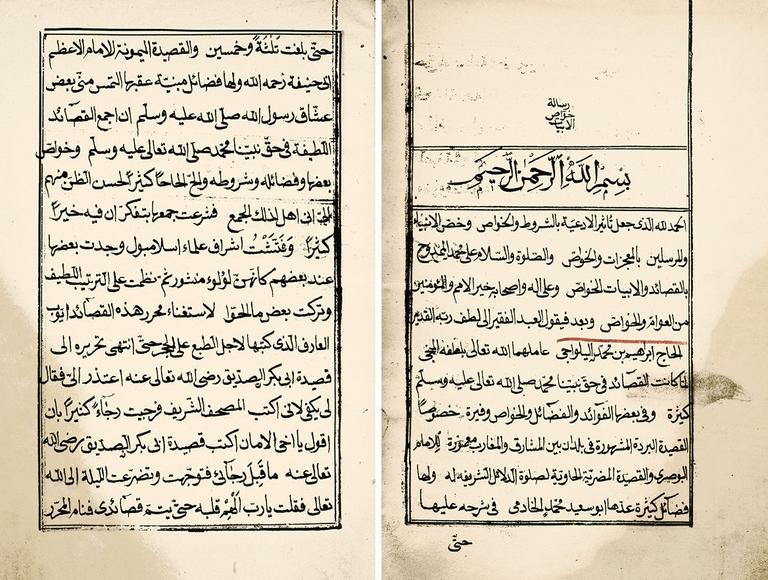 رسالة
خواص
الابيات
بسم الله الرحمن الرحيم
الحمد لله الذى جعل تأثير الادعية بالشروط والخواص وخص الانبياء
والمرسلين بالمعجزات والخواص والصلوة والسلام على محمد الممدوح
بالقصائد والابيات الخواص وعلى اله واصحابه خير الامم والمؤمنين
من العوام والخواص وبعد فيقول العبد الفقير الى لطف ربه القدير
الحاج ابراهيم بن محمد اليلواجى عاملهما الله تعالى بلطفه الخفى
لما كانت القصائد فى حق نبينا محمد صلى الله تعالى عليه وسلم
كثيرة وفى بعضها الفوائد والفضائل والخواص وفيرة خصوصا
القصيدة البردة المشهورة فى بلدان بين المشارق والمغارب للامام
البوصرى والقصيدة المضرية الحاوية لصلوة الدلائل الشريفة له ولها
فضائل كثيرة عدها ابو سعيد محمد الخادمى فى شرحه عليها
حتى
حتى بلغت ثلثة وخمسين والقصيدة اليمونة للامام الاعظم
ابى حنيفة رحمه الله ولها فضائل مبنية عقبها التمس منى بعض
عشاق رسول الله صلى الله عليه وسلم ان اجمع القصائد
اللطيفة فى حق نبينا محمد صلى الله تعالى عليه وسلم وخواص
بعضها وفضائله وشروطه والح الحاحا كثيرا لحسن الظن منهم
انى اهل لذلك الجمع فشرعت جمعها بتفكر ان فيه خيرا
كثيرا وفتشت اشراف علماء اسلامبول وجدت بعضها
عند بعضهم كانهن لؤلوء منشور ثم نظمت على الترتيب اللطيف
وتركت بعض ما الحقوا لاستغناء محرر هذه القصائد ايوب
العارف الذى كتبها لاجل الطبع على الحجر حتى انتهى تحريره الى
قصيدة ابى بكر الصديق رضى الله تعالى عنه اعتذر الى فقال
لى يكفى لانى اكتب المصحف الشريف فرجيت رجاء كثيرا بان
اقول يا اخى الامان اكتب قصيدة ابى بكر الصديق رضى الله
تعالى عنه ما قبل رجائى فتوجهت وتضرعت الليلة الى الله
تعالى فقلت يا رب الهم قلبه حتى يتم قصائدى فنام المحرر